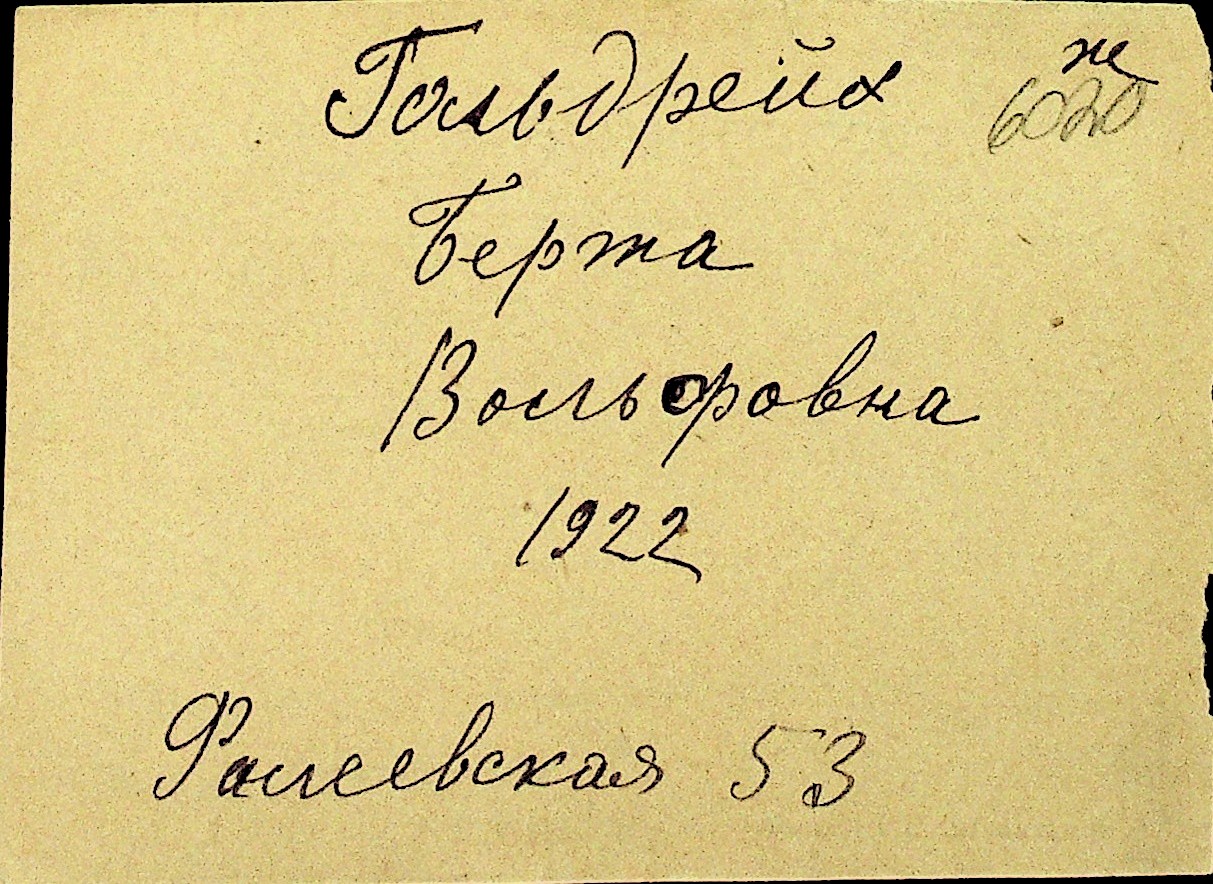 Гольдрейх ж
6020
Берта
Вольфовна
1922
Фалеевская 53